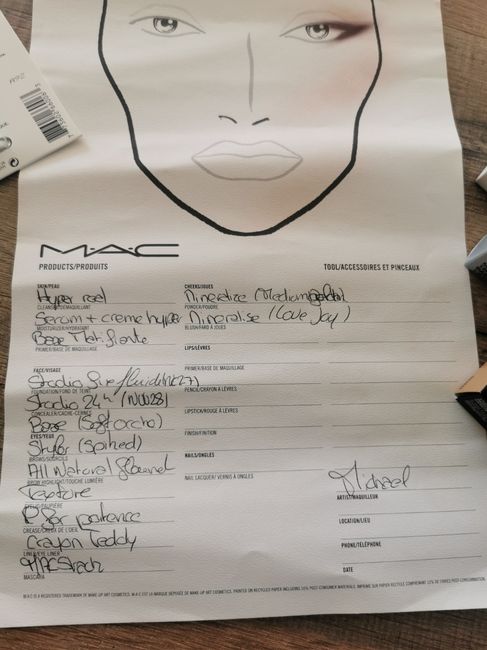 M·A·C
PRODUCTS/PRODUITS
TOOL/ACCESSOIRES ET PINCEAUX
SKIN/PEAU
Hyper reel
CLEANSER/DÉMAQUILLANT
Serum + creme hyper
MOISTURIZER/HYDRATANT
Base Matifiante
PRIMER/BASE DE MAQUILLAGE
FACE/VISAGE
Studio fluid
FOUNDATION/FOND DE TEINT
Studio 24h (NW28)
CONCEALER/CACHE-CERNES
Base (Soft ochre)
EYES/YEUX
Styler (Spiked)
BROWS/SOURCILS
All Natural
BROW HIGHLIGHT/TOUCHE LUMIÈRE
Texture
LID/PAUPIÈRE
P for potence
CREASE/CREUX DE L'OEIL
Crayon Teddy
LINER/EYE LINER
MAC Stack
MASCARA
CHEEKS/JOUES
Mineralize (Medium golden)
POWDER/POUDRE
Mineralise (Love Joy)
BLUSH/FARD À JOUES
LIPS/LÈVRES
PRIMER/BASE DE MAQUILLAGE
PENCIL/CRAYON À LÈVRES
LIPSTICK/ROUGE À LÈVRES
FINISH/FINITION
NAILS/ONGLES
NAIL LACQUER/ VERNIS À ONGLES
Michael
ARTIST/MAQUILLEUR
LOCATION/LIEU
PHONE/TÉLÉPHONE
DATE
M·A·C IS A REGISTERED TRADEMARK OF MAKE-UP ART COSMETICS. M·A·C EST LA MARQUE DÉPOSÉE DE MAKE-UP ART COSMETICS. PRINTED ON RECYCLED PAPER INCLUDING 10% POST-CONSUMER MATERIALS. IMPRIMÉ SUR PAPIER RECYCLÉ COMPRENANT 10% DE FIBRES POST-CONSOMMATION.